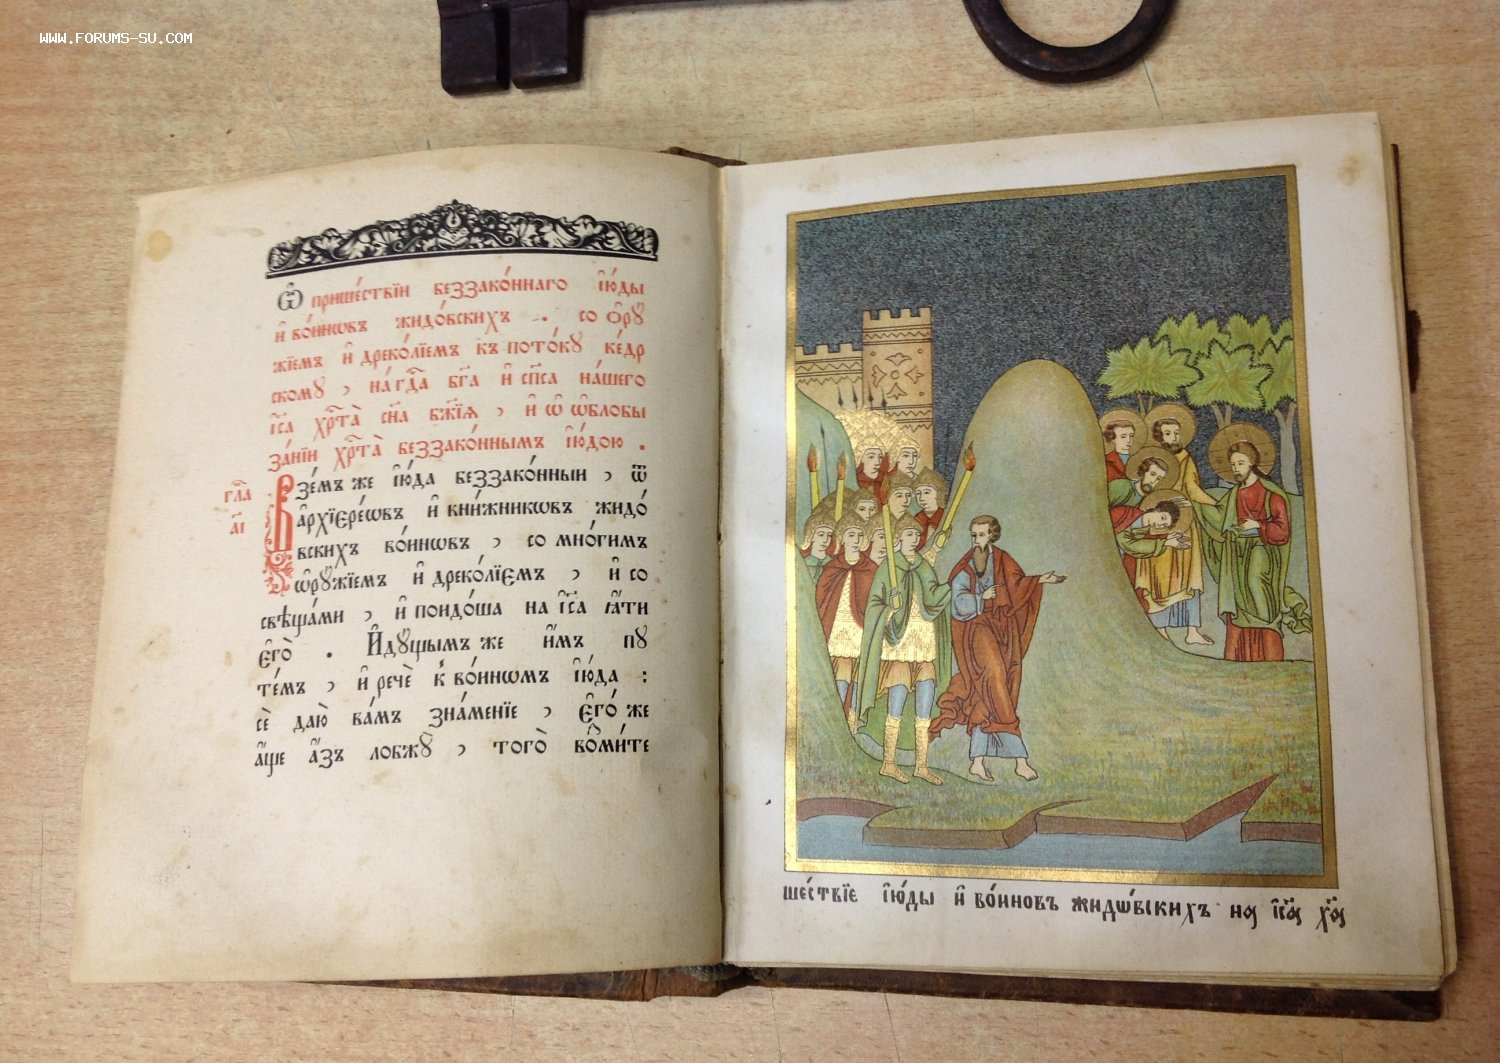 WWW.FORUMS-SU.COM
Ѡ҆ прише́ствїи беззако́ннаго і҆ю́ды
и҆ во́инѡвъ жидо́вскихъ . со ѻ҆рꙋ
жїемъ и҆ дреко́лїемъ къ пото́кꙋ ке́др
скомꙋ , на гд҇а бг҃а и҆ сп҃са на́шего
і҆с҃а хрⷭ҇та̀ сн҃а бж҃їѧ , и҆ ѡ҆ ѡ҆блобы
за́нїи хрⷭ҇та̀ беззако́ннымъ і҆ю́дою .
гла
а҃і
Взе́мъ же і҆ю́да беззако́нныи , ѿ
а҆рхїере́ѡвъ и҆ кни́жникѡвъ жидо́
вскихъ во́инѡвъ , со мно́гимъ
ѡ҆рꙋ́жїемъ и҆ дреко́лїемъ , и҆ со
свѣща́ми , и҆ поидо́ша на і҆с҃а ꙗ҆́ти
є҆го̀ . И҆дꙋ́щымъ же и҆̀мъ пꙋ
те́мъ , и҆ речѐ к во́инѡмъ і҆ю́да :
сѐ даю̀ ва́мъ зна́менїе , є҆го́ же
а҆́ще а҆́зъ лобжꙋ̀ , того̀ во́мите
ше́ствїе і҆ю́ды и҆ во́иновъ жидѡ́вскихъ на і҆са х҃а